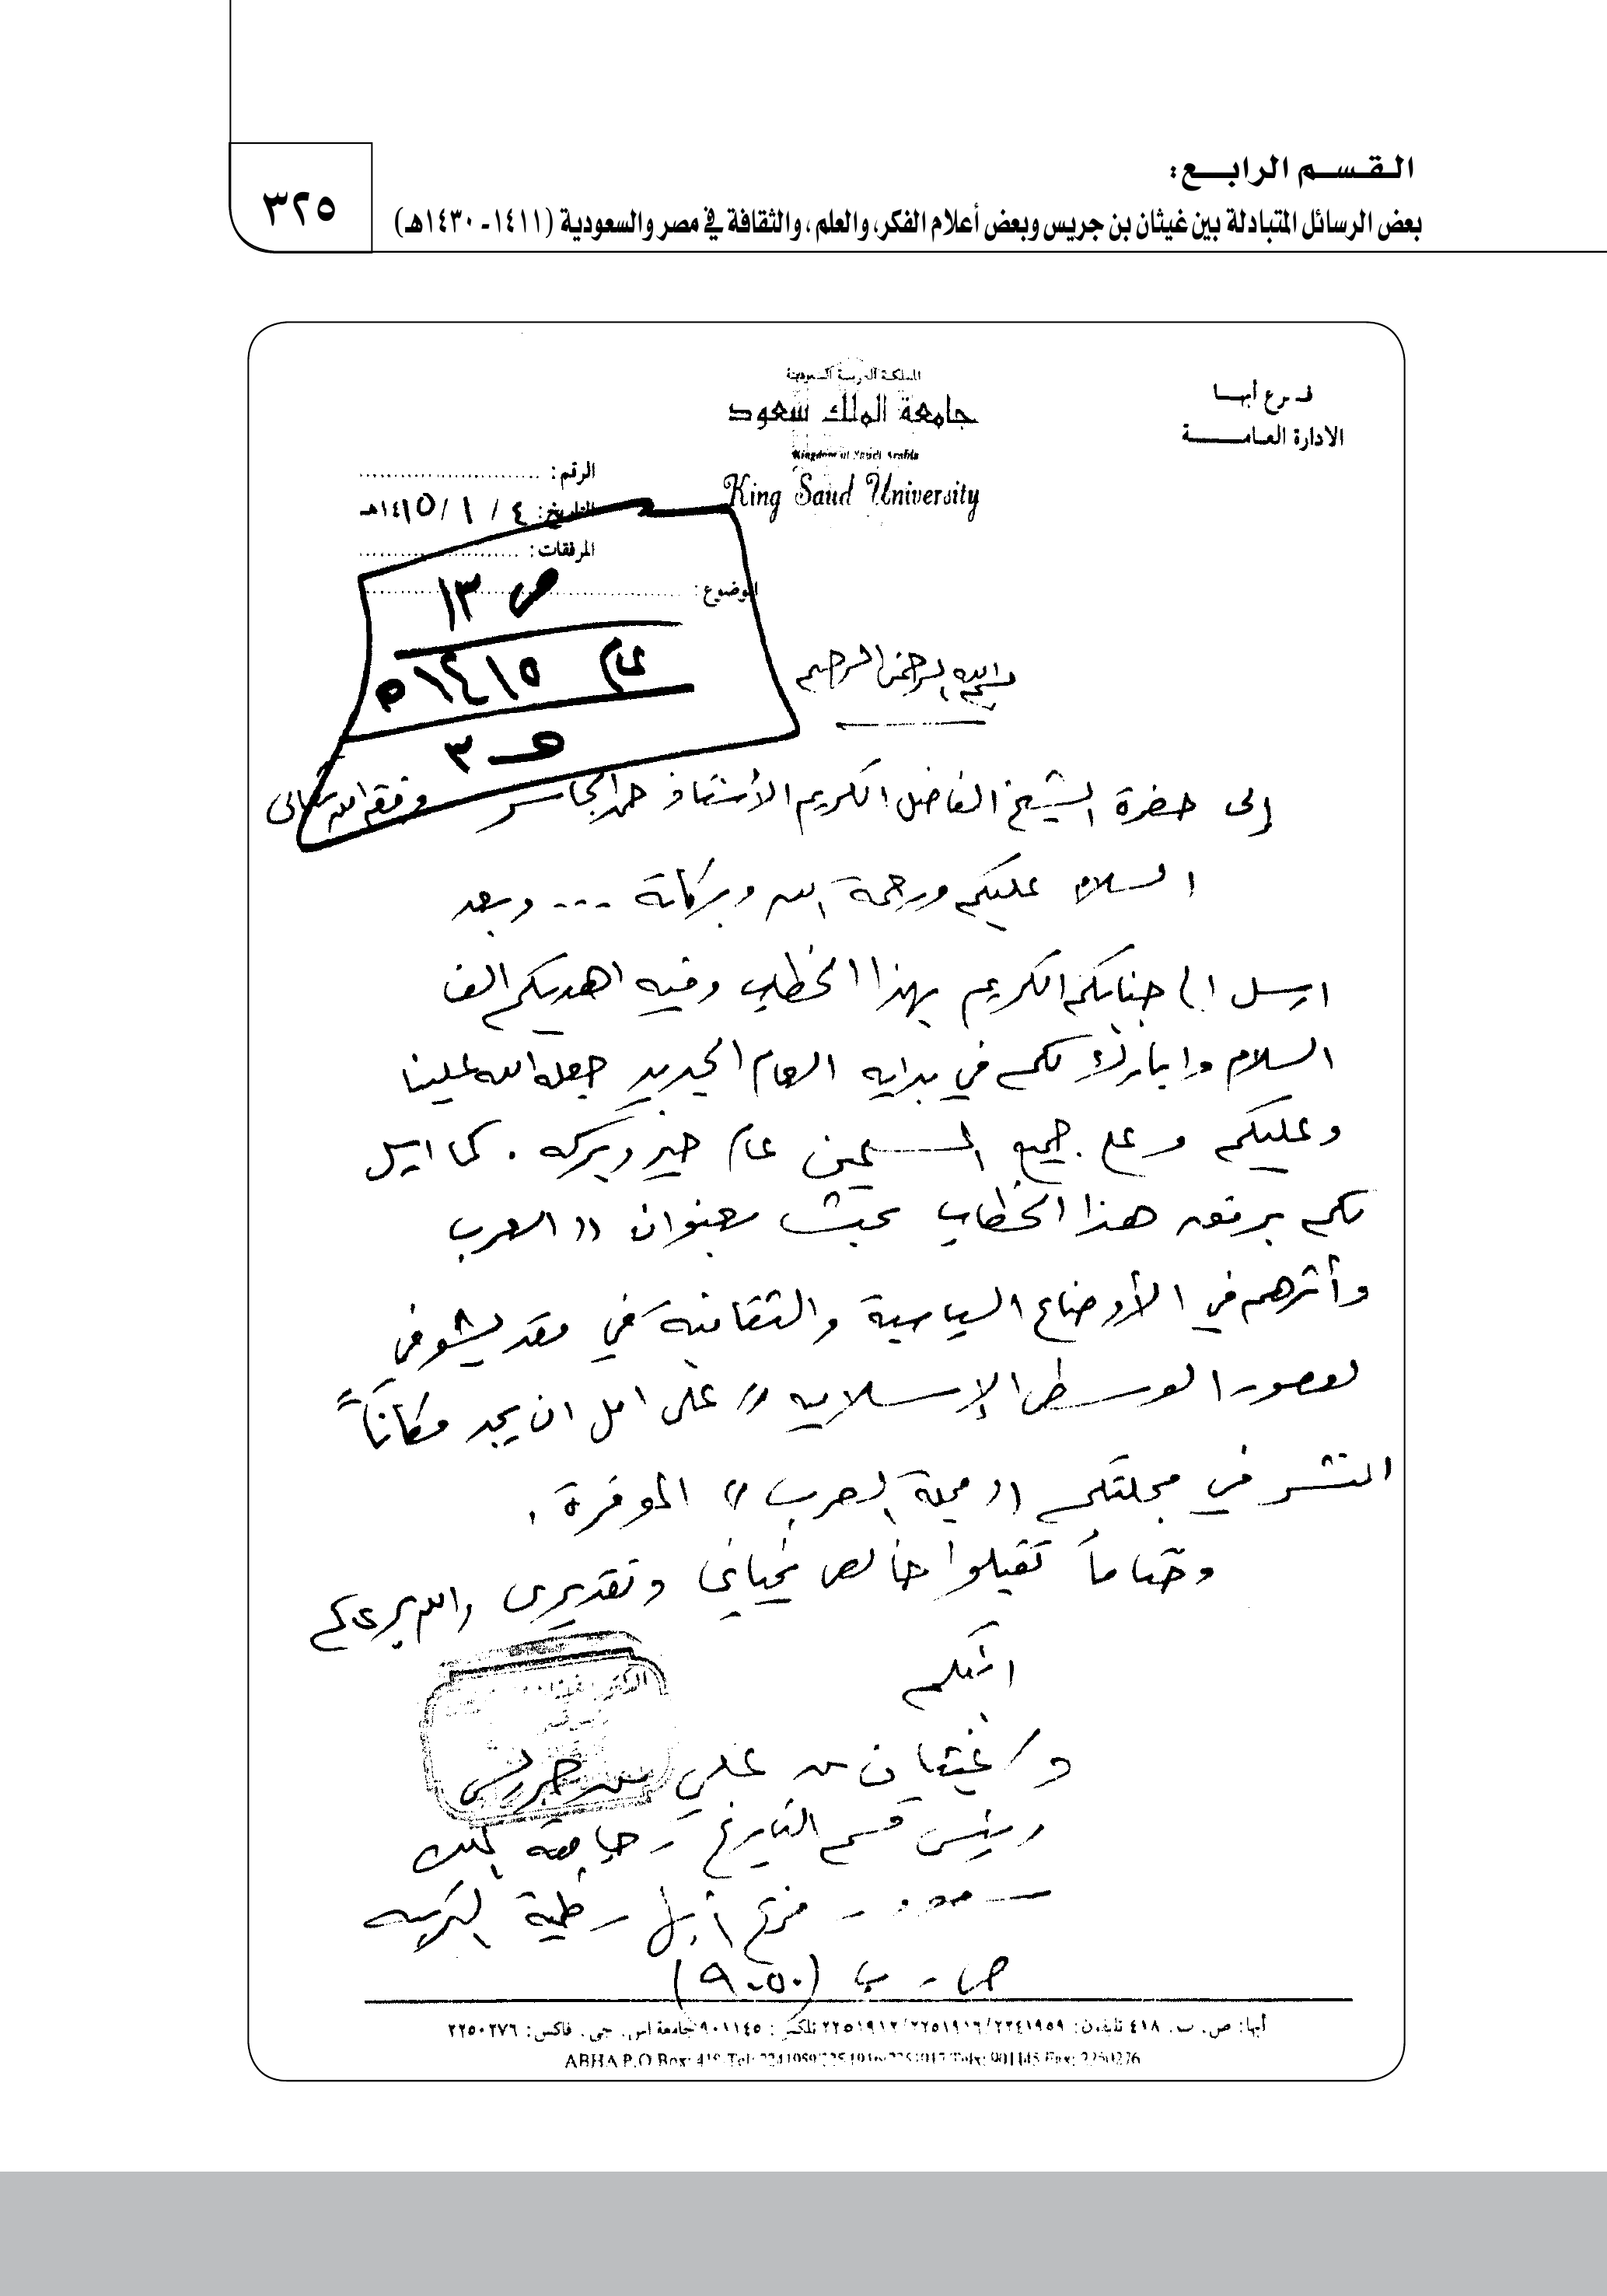 القسم الرابع:
بعض الرسائل المتبادلة بين غيثان بن جريس وبعض أعلام الفكر، والعلم، والثقافة في مصر والسعودية (١٤١١- ١٤٣٠هـ)
٣٢٥
المملكة العربية السعودية
جامعة الملك سعود
Kingdom of Saudi Arabia
King Saud University
فرع أبها
الادارة العامة
الرقم:
التاريخ: ٤ / ١ / ١٤١٥هـ
المرفقات:
الموضوع:
ص ١٣
عام ١٤١٥ه
هـ ٣
بسم الله الرحمن الرحيم
إلى حضرة الشيخ الفاضل الكريم الأستاذ حمد الجاسر وفقه الله تعالى
السلام عليكم ورحمة الله وبركاته ... وبعد
ارسل الى جنابكم الكريم بهذا الخطاب وفيه اهديكم الف
السلام وابارك لكم في بدايه العام الجديد جعله الله علينا
وعليكم وعلى جميع المسلمين عام خير وبركه . كما ارسل
لكم برفقه هذا الخطاب بحث بعنوان (( العرب
وأثرهم في الأوضاع السياسية والثقافية في مقديشو في
لعصور الوسطى الإسلاميه )) على امل ان يجد مكاناً
النشر في مجلتكم (( مجلة العرب )) الموقرة .
وختاماً تقبلوا خالص تحياتي وتقديري والله يرعاكم
ابنكم
د/ غيثان بن علي بن جريس
رئيس قسم التاريخ - جامعة الملك
سعود - فرع أبها - كلية التربيه
ص - ب (٩٠٥٠)
أبها: ص. ب. ٤١٨ تليفون: ٢٢٤١٩٥٩/٢٢٥١٩١٦/٢٢٥١٩١٢ تلكس: ٩٠١١٤٥ جامعة اس. جي. فاكس: ٢٢٥٠٢٧٦
ABHA P.O Box: 418 Tel: 2241959/2251916/2251912 Telx: 901145 Fax: 2250276